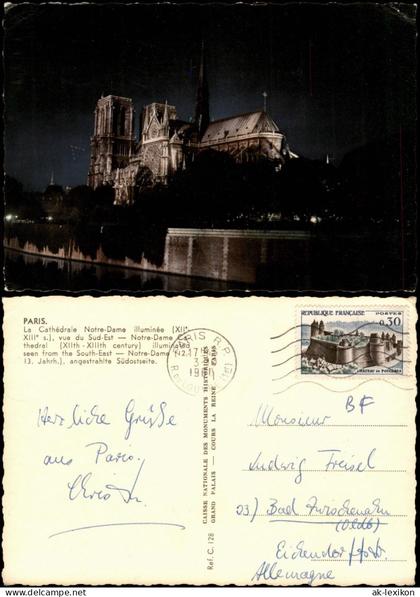 PARIS.
La Cathédrale Notre-Dame illuminée (XIIe
XIIIe s.), vue du Sud-Est — Notre-Dame Ca-
thedral (XIIth - XIIIth century) illuminated
seen from the South-East — Notre-Dame (12.
13. Jahrh.), angestrahlte Südostseite.
PARIS R.P.
17H
3
1961
REPUBLIQUE FRANÇAISE
POSTES
0,30
CHATEAU DE FOUGERES
CAISSE NATIONALE DES MONUMENTS HISTORIQUES
GRAND PALAIS — COURS LA REINE — PARIS
Ref. C. 128
Herzliche Grüße
aus Paris.
BF
Monsieur
Ludwig Freisel
23) Bad Zwischenahn
(Oldb)
Eichendorffstr.
Allemagne
www.ansichtskarten-lexikon.de
ak-lexikon.de